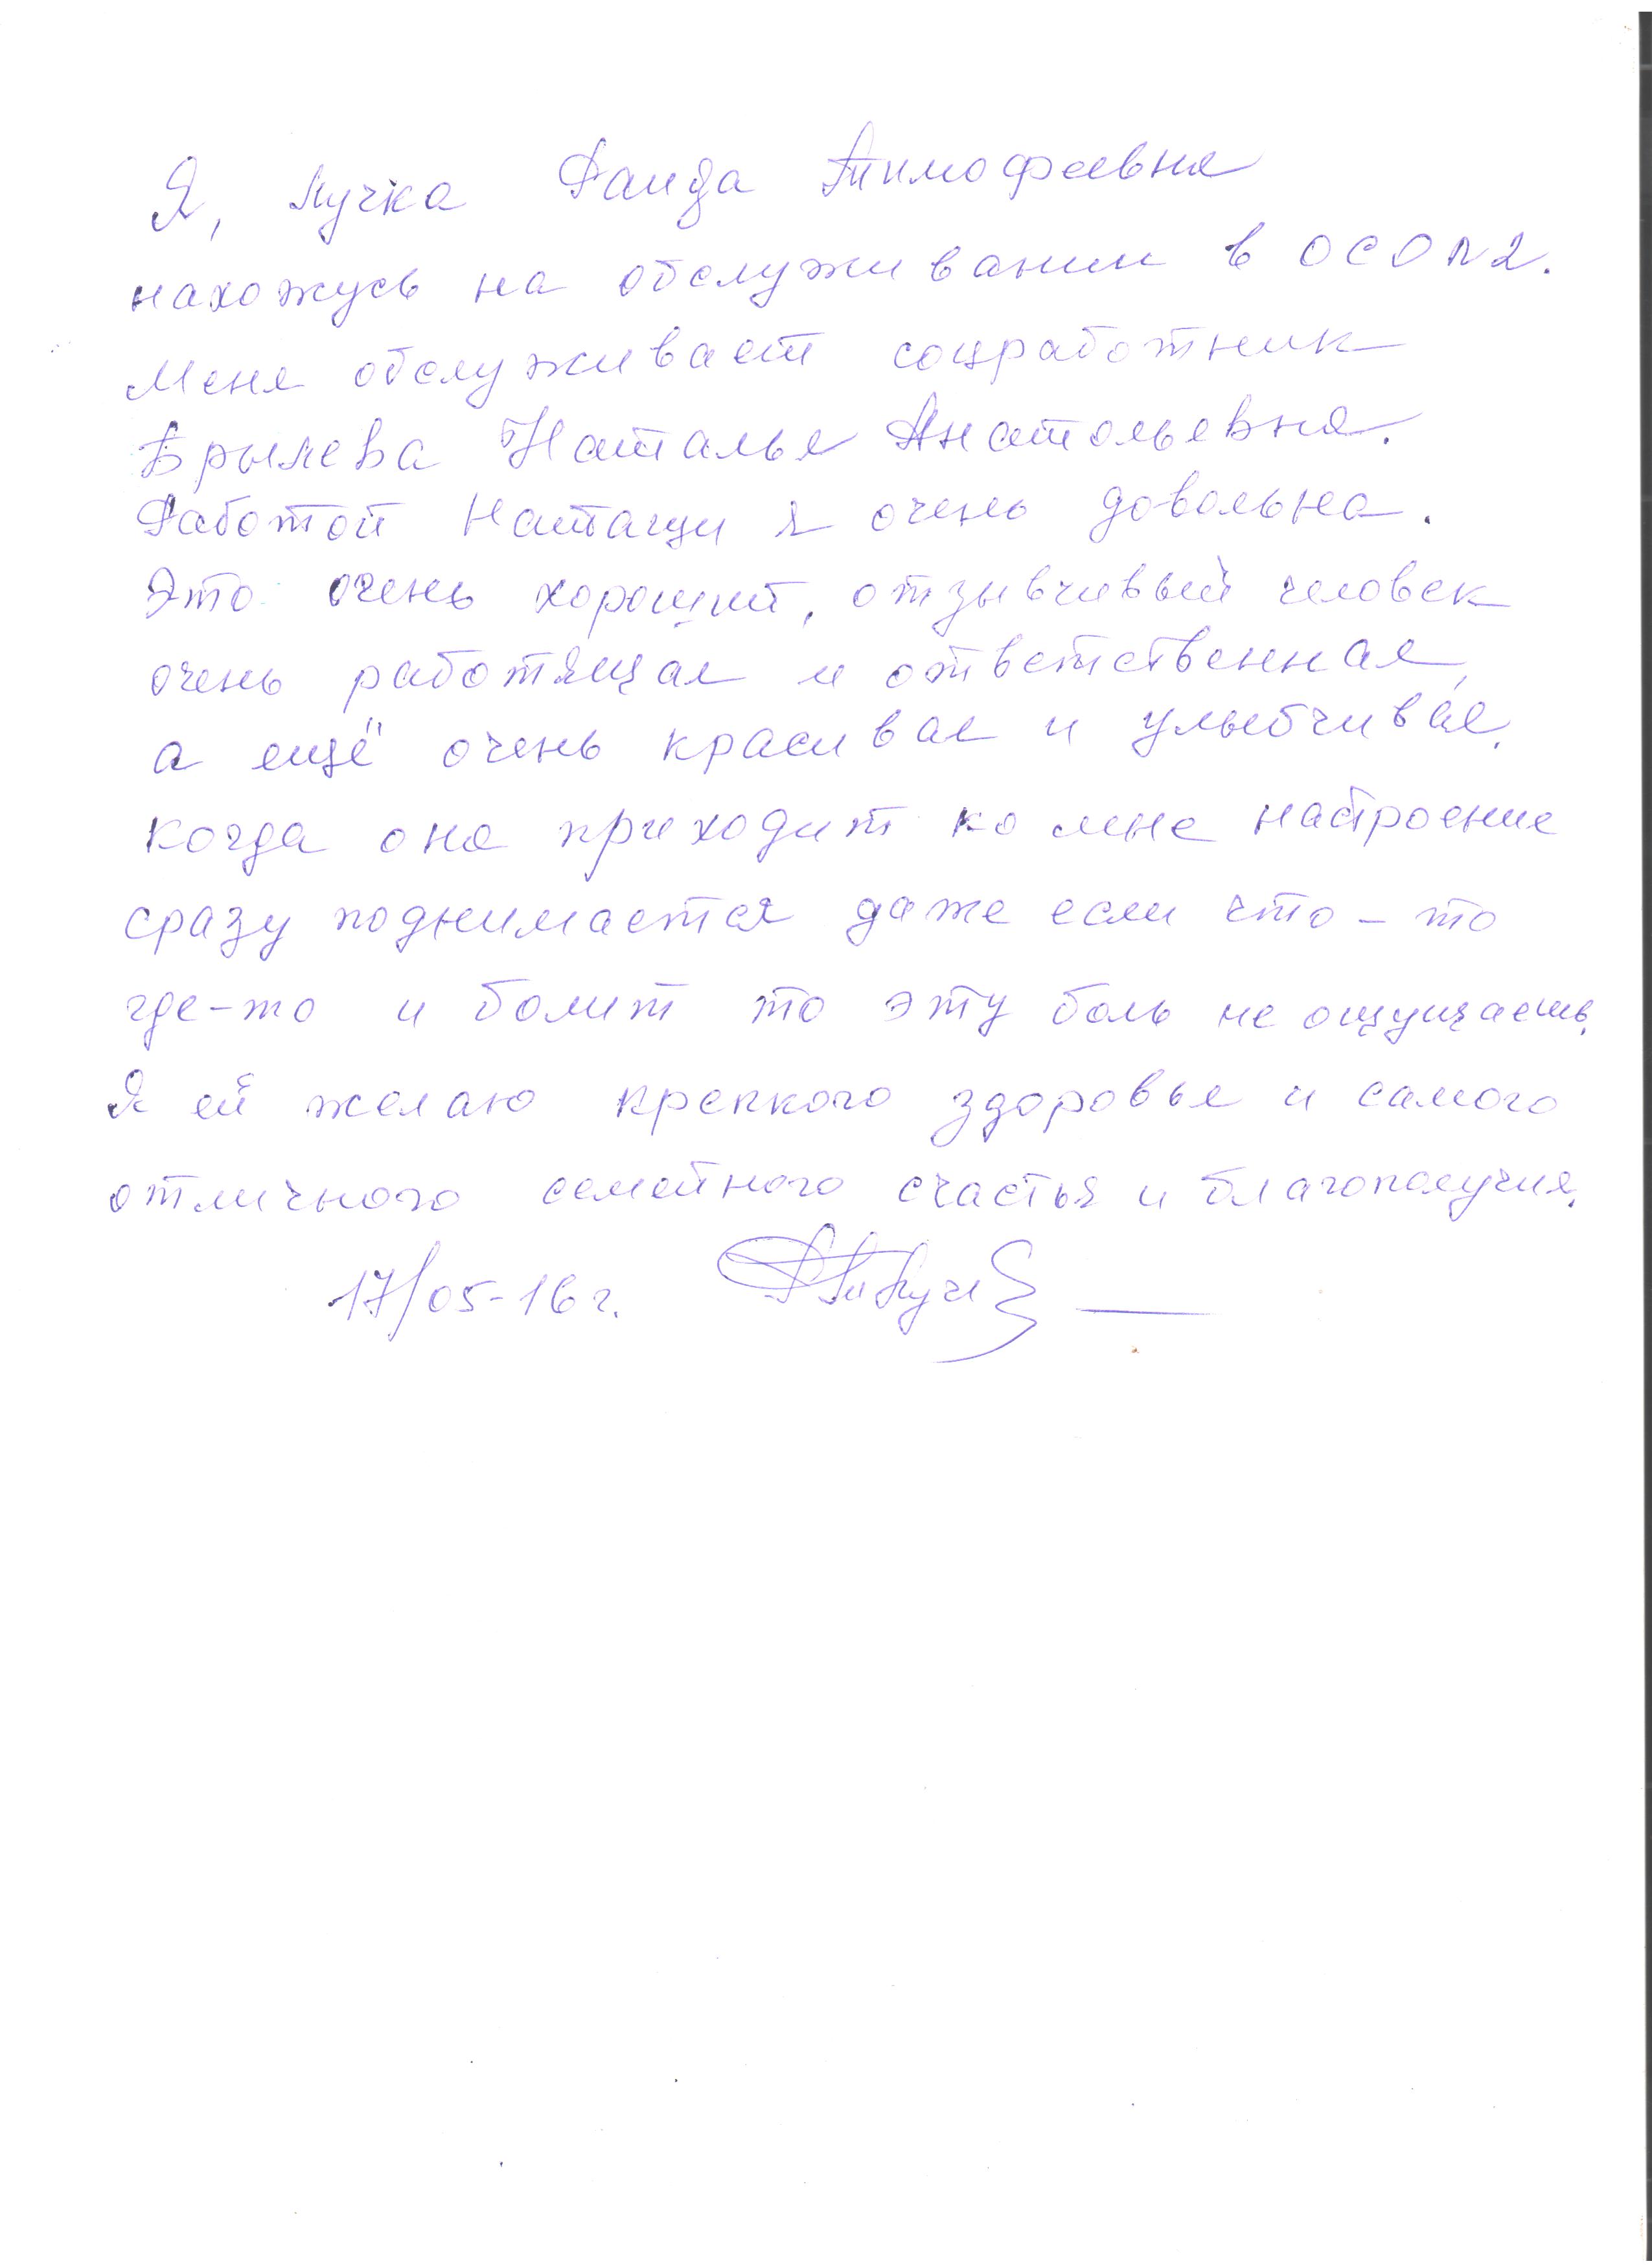 Я, Лучка Раида Тимофеевна
нахожусь на обслуживании в ОСО N2.
Меня обслуживает соцработник
Брылева Наталья Анатольевна.
Работой Наташи я очень довольна.
Это очень хороший, отзывчивый человек
очень работящая и ответственная,
а ещё очень красивая и улыбчивая.
Когда она приходит ко мне настроение
сразу поднимается даже если что-то
где-то и болит то эту боль не ощущаешь.
Я ей желаю крепкого здоровья и самого
отличного семейного счастья и благополучия.
17/05-16 г.